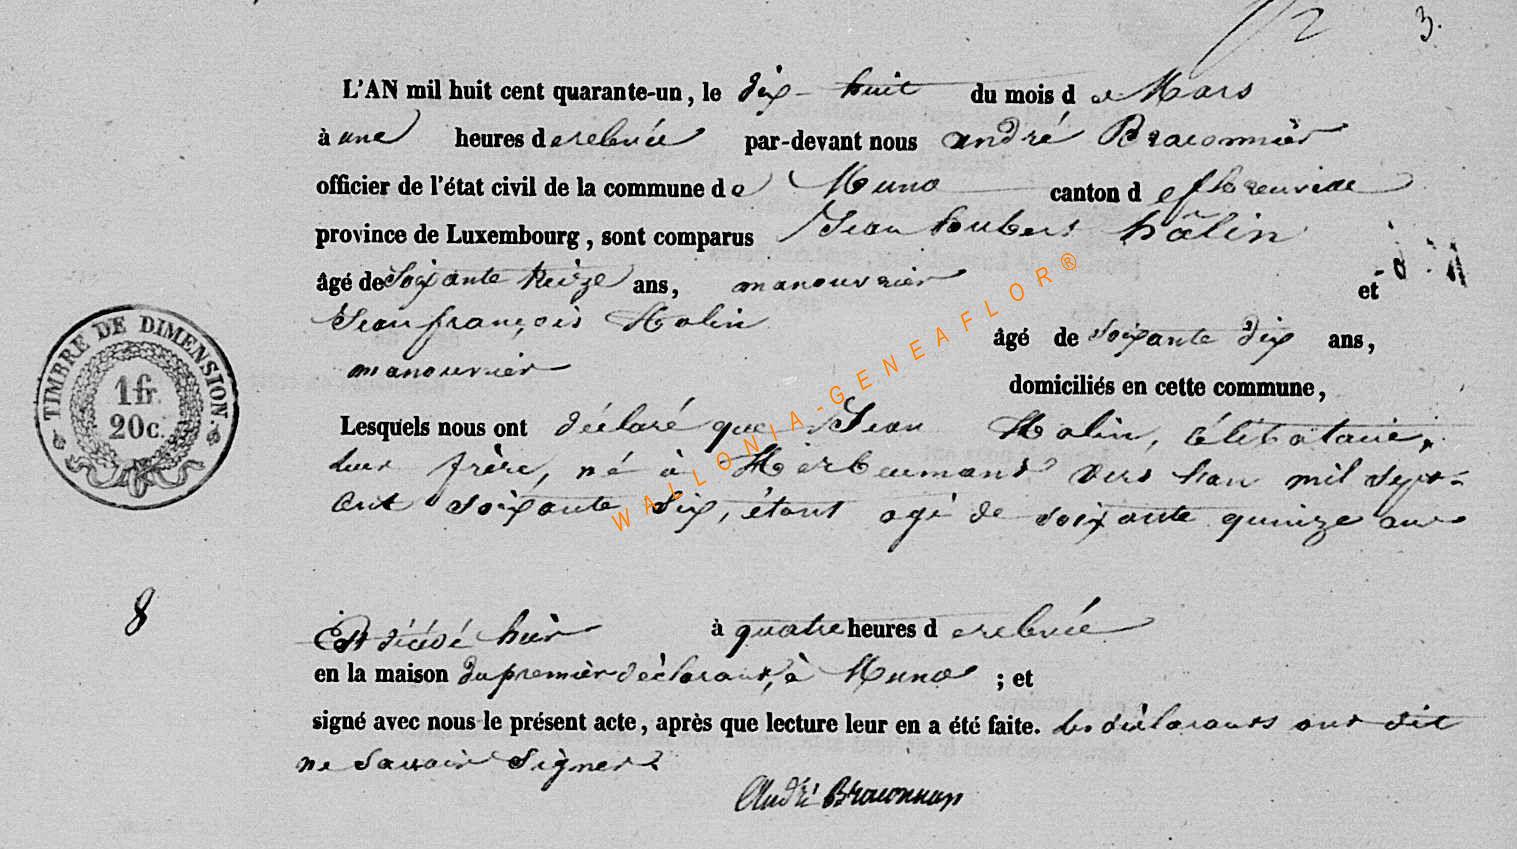 3.
L'AN mil huit cent quarante-un, le dix-huit du mois de Mars
à une heures de relevée par-devant nous andré Braconnier
officier de l'état civil de la commune de Muno canton de florenville
province de Luxembourg, sont comparus Jean hubert hâlin
âgé de soixante treize ans, manouvrier et
Jean françois Halin âgé de soixante dix ans,
manouvrier domiciliés en cette commune,
Lesquels nous ont déclaré que Jean Halin, célibataire,
leur frère, né à Herbeumont vers l'an mil sept-
cent soixante six, étant agé de soixante quinze ans
TIMBRE DE DIMENSION
1 fr.
20 c.
8
Est décédé hier à quatre heures de relevée
en la maison du premier déclarant, à Muno ; et
signé avec nous le présent acte, après que lecture leur en a été faite. les déclarants ont dit
ne savoir signer
André Braconnier
WALLONIA-GENEAFLOR®